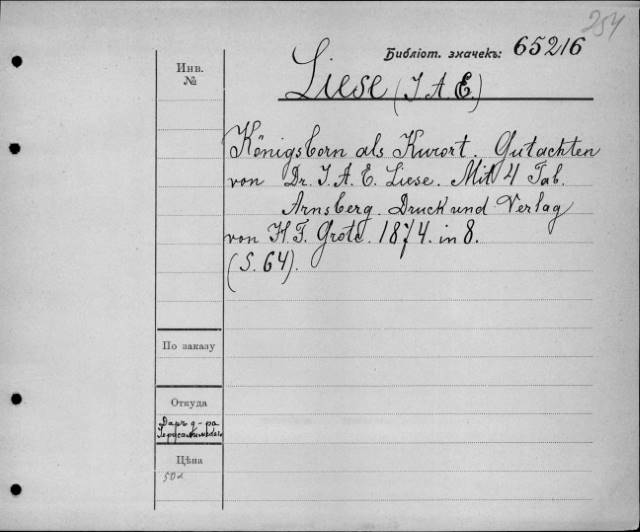 254
Библіот. значекъ: 65216
Инв.
№
Liese (J. A. E.)
Königsborn als Kurort. Gutachten
von Dr. J. A. E. Liese. Mit 4 Tab.
Arnsberg. Druck und Verlag
von H. F. Grote. 1874. in 8.
(S. 64).
По заказу
Откуда
Даръ д-ра
Цѣна
50к